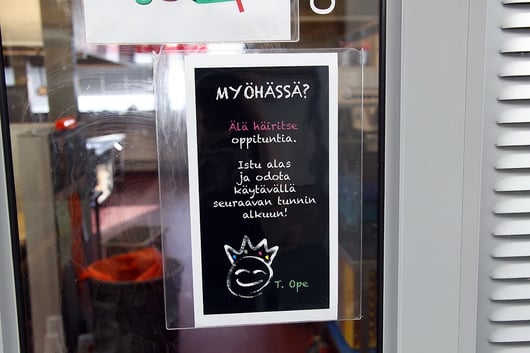 MYÖHÄSSÄ?
Älä häiritse
oppituntia.
Istu alas
ja odota
käytävällä
seuraavan tunnin
alkuun!
T. Ope